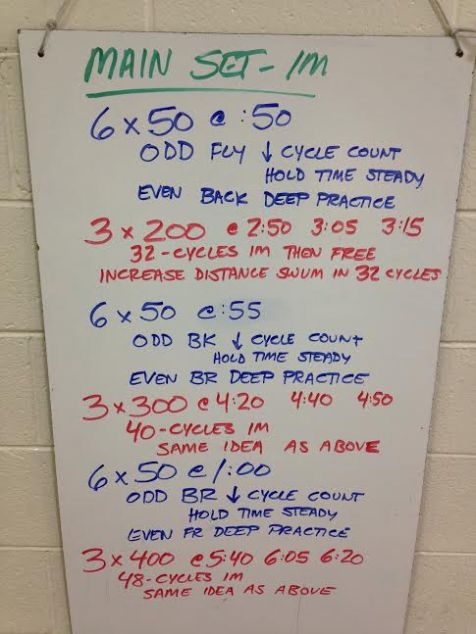 MAIN SET - IM
6 x 50 @ :50
ODD FLY ↓ CYCLE COUNT
HOLD TIME STEADY
EVEN BACK DEEP PRACTICE
3 x 200 @ 2:50 3:05 3:15
32-CYCLES IM THEN FREE
INCREASE DISTANCE SWUM IN 32 CYCLES
6 x 50 @ :55
ODD BK ↓ CYCLE COUNT
HOLD TIME STEADY
EVEN BR DEEP PRACTICE
3 x 300 @ 4:20 4:40 4:50
40-CYCLES IM
SAME IDEA AS ABOVE
6 x 50 @ 1:00
ODD BR ↓ CYCLE COUNT
HOLD TIME STEADY
EVEN FR DEEP PRACTICE
3 x 400 @ 5:40 6:05 6:20
48-CYCLES IM
SAME IDEA AS ABOVE